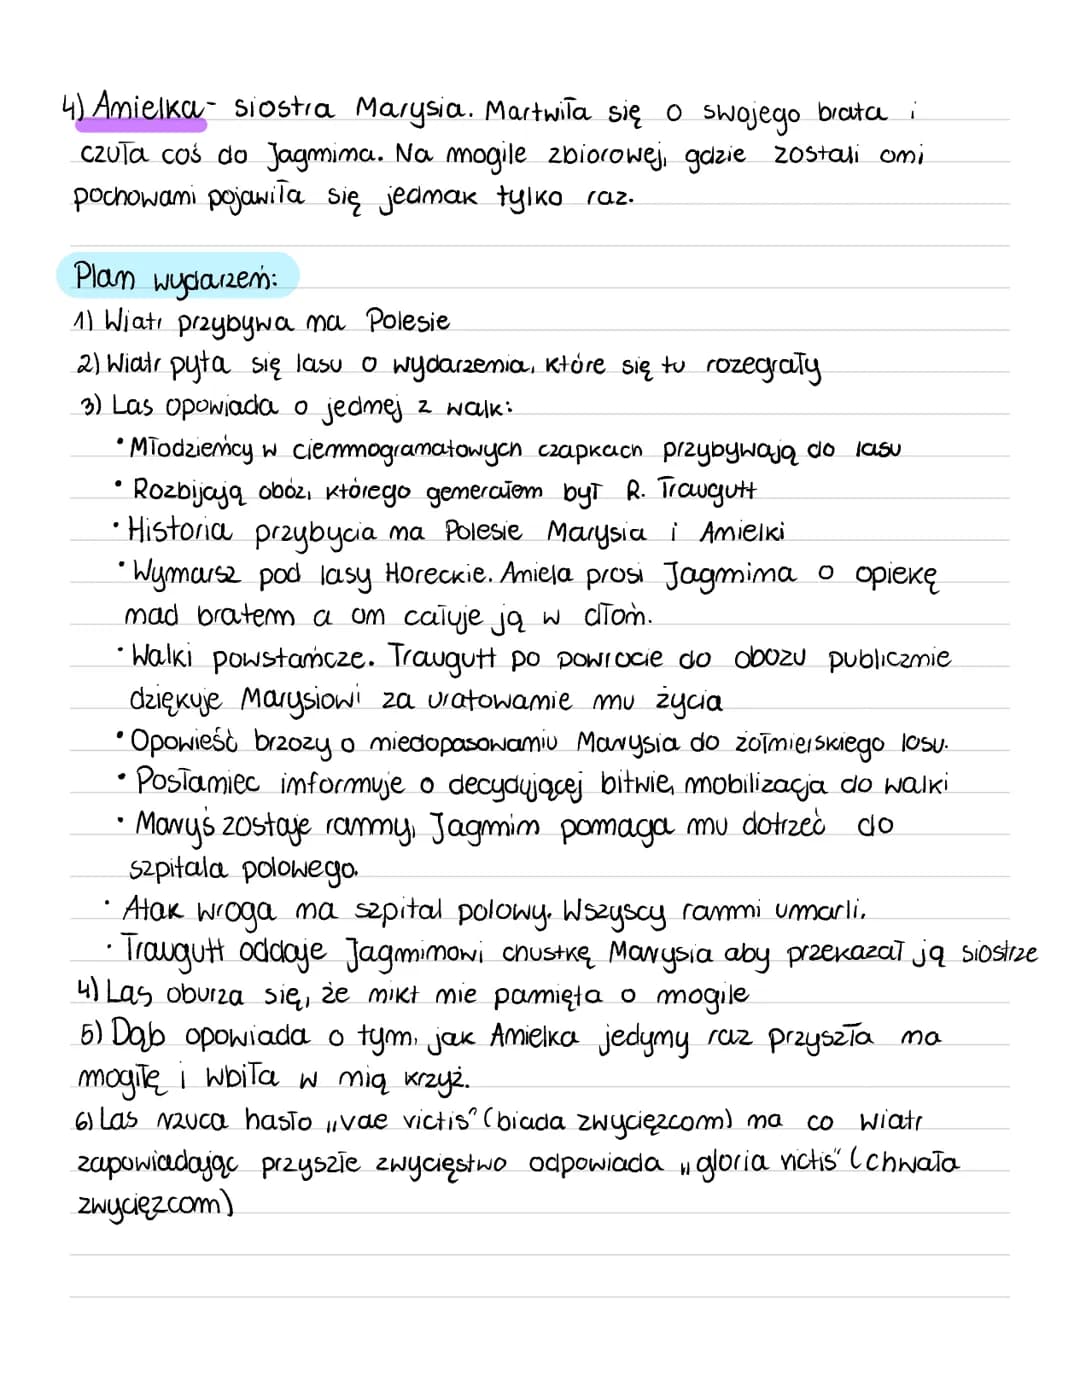 4) Anielka - siostra Marysia. Martwiła się o swojego brata i
czuła coś do Jagmina. Na mogile zbiorowej, gdzie zostali oni
pochowani pojawiła się jednak tylko raz.
Plan wydarzeń:
1) Wiatr przybywa na Polesie
2) Wiatr pyta się lasu o wydarzenia, które się tu rozegrały
3) Las opowiada o jednej z walk:
• Młodzieńcy w ciemnogranatowych czapkach przybywają do lasu
• Rozbijają obóz, którego generałem był R. Traugutt
• Historia przybycia na Polesie Marysia i Anielki
• Wymarsz pod lasy Horeckie. Aniela prosi Jagmina o opiekę
nad bratem a on całuje ją w dłoń.
• Walki powstańcze. Traugutt po powrocie do obozu publicznie
dziękuje Marysiowi za uratowanie mu życia
• Opowieść brzozy o niedopasowaniu Marysia do żołnierskiego losu.
• Posłaniec informuje o decydującej bitwie, mobilizacja do walki
• Maryś zostaje ranny, Jagmin pomaga mu dotrzeć do
szpitala polowego.
• Atak wroga na szpital polowy. Wszyscy ranni umarli.
• Traugutt oddaje Jagminowi chustkę Marysia aby przekazał ją siostrze
4) Las oburza się, że nikt nie pamięta o mogile
5) Dąb opowiada o tym, jak Anielka jedyny raz przyszła na
mogiłę i wbiła w nią krzyż.
6) Las rzuca hasło „vae victis" (biada zwyciężcom) na co wiatr
zapowiadając przyszłe zwycięstwo odpowiada „gloria victis" (chwała
zwyciężcom)